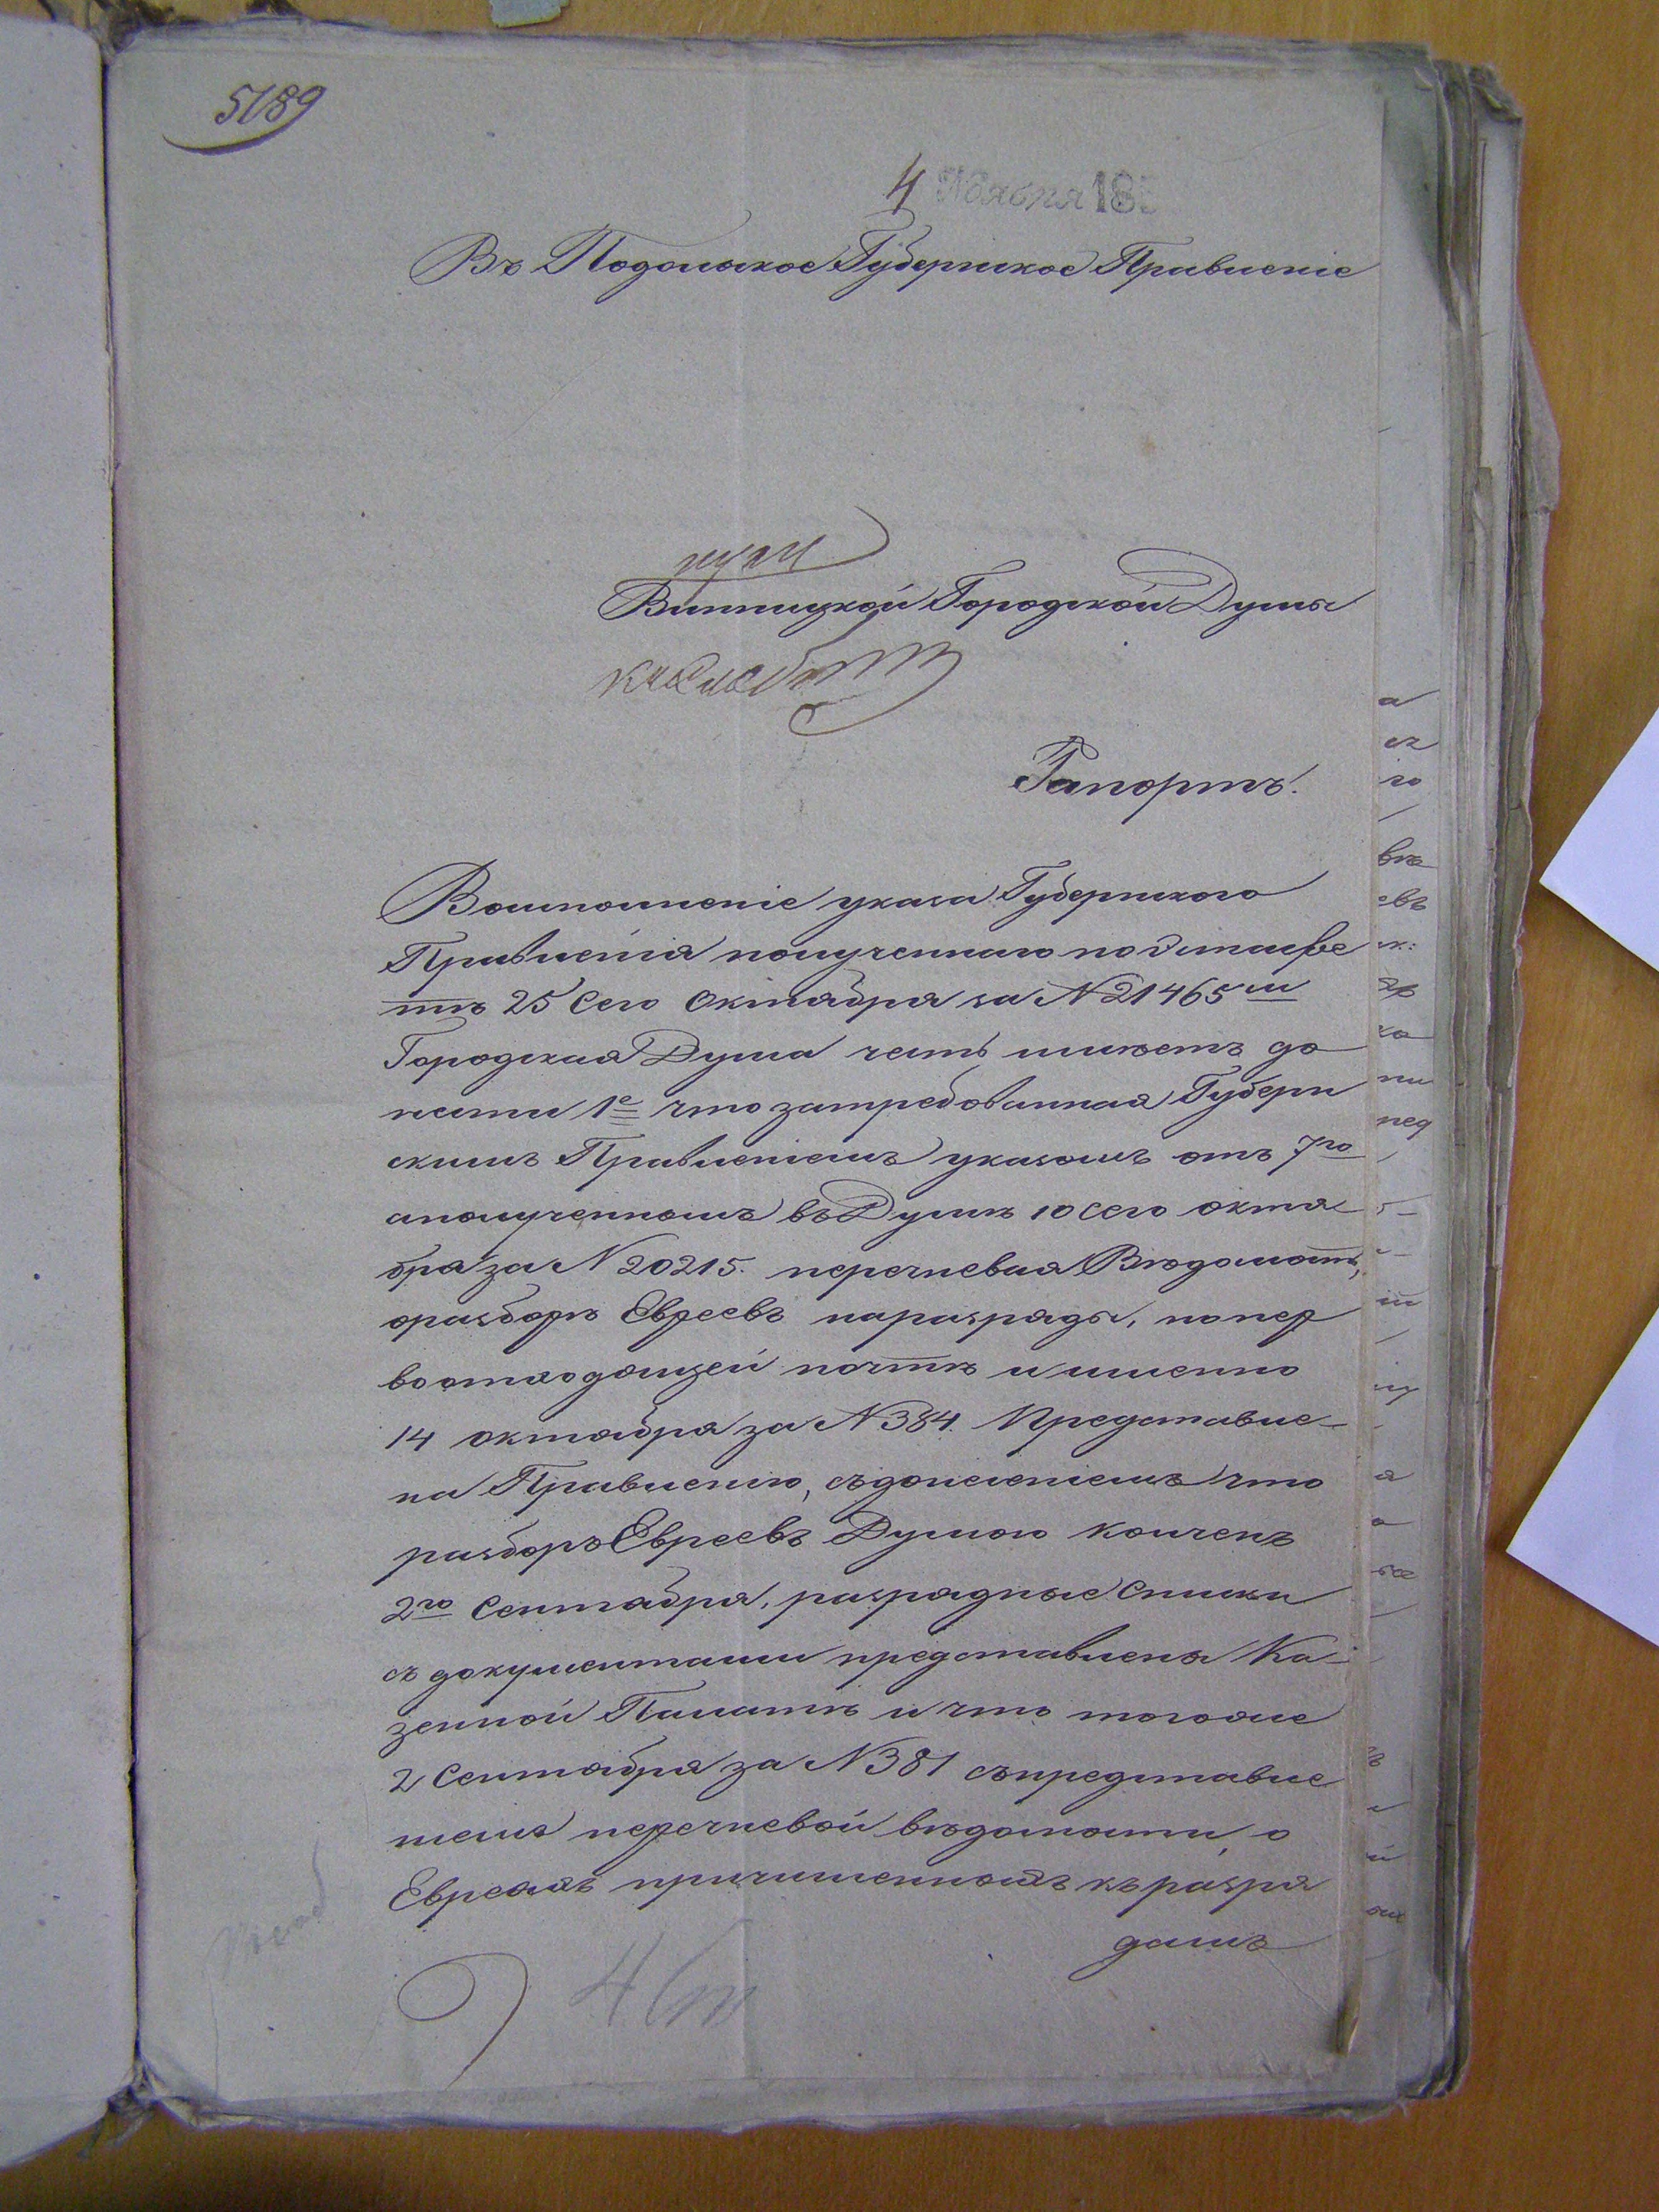 5189
4 Ноября 185
Въ Подольское Губернское Правленіе
Винницкой Городской Думы
Рапортъ.
Воисполненіе указа Губернского
Правленія полученнаго по Эстафе
тѣ 25 сего Октября за N 21465 ш
Городская Дума честь имѣетъ до
нести 1е что затребованная Губерн
скимъ Правленіемъ указомъ отъ 7го
аполученномъ въ Думѣ 10 сего октя
бра за N 20215. перечневая Вѣдомость,
оразборѣ Евреевъ наразряды, попер
воотходящей почтѣ и именно
14 октября за N 384. Представле-
на Правленію, съдонесеніемъ что
разборъ Евреевъ Думою конченъ
2го Сентября, разрядные Списки
съ документами представлены Ка-
зенной Палатѣ и что тогоже
2 Сентября за N 381 съпредставле
ніемъ перечневой вѣдомости о
Евреяхъ причисленныхъ къ разря
дамъ